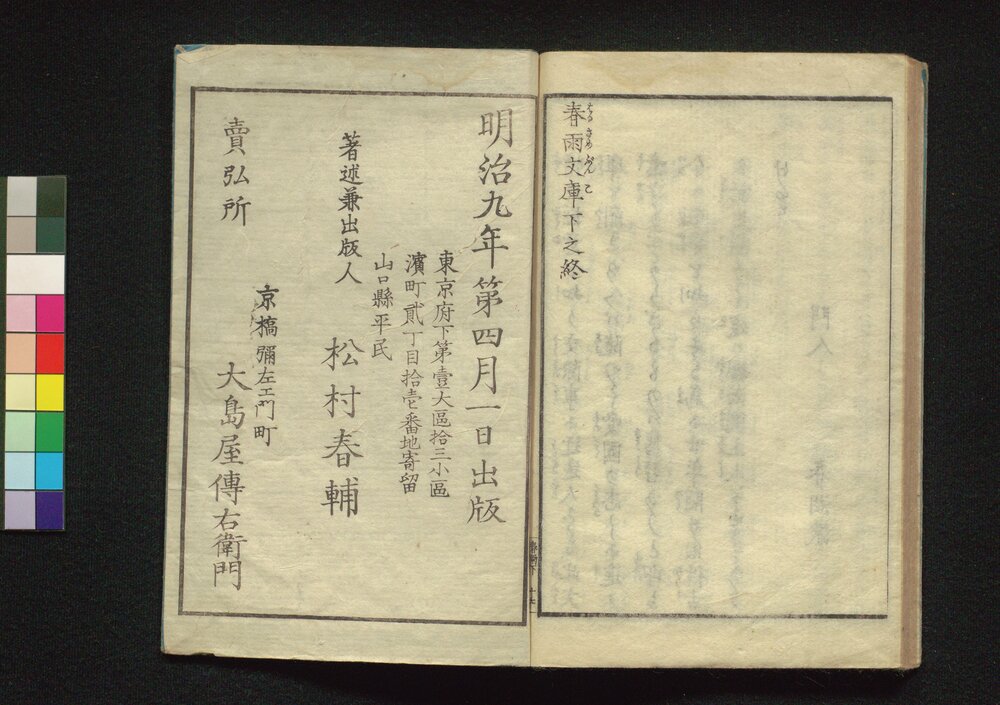 春雨文庫下之終
はるさめぶんこ
明治九年第四月一日出版
東京府下第壹大區拾三小區
濱町貳丁目拾壱番地寄留
山口縣平民
著述兼出版人 松村春輔
賣弘所
京橋彌左エ門町
大島屋傳右衛門